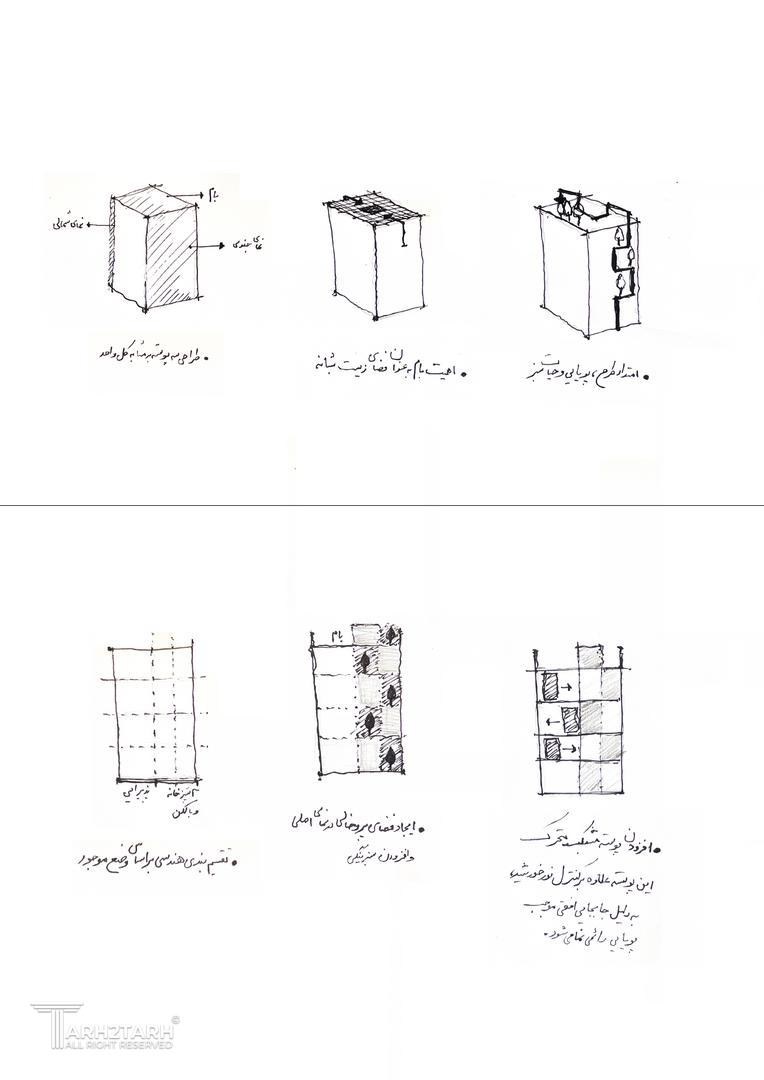 بام
نمای شمالی
نمای جنوبی
• طراحی سه پوسته به مثابه کل واحد
• اهمیت بام به عنوان فضای زیست شبانه
• امتداد طرح، پویایی و حیات سبز
بام
پذیرایی
آشپزخانه
و بالکن
• تقسیم بندی هندسی براساس وضع موجود
• ایجاد فضای پر و خالی در نمای اصلی
و افزودن سبزینگی
• افزودن پوسته مشبک متحرک
این پوسته علاوه بر کنترل نور خورشید
به دلیل جابجایی افقی موجب
پویایی دائمی نما می شود.
TARH2TARH©
ALL RIGHT RESERVED